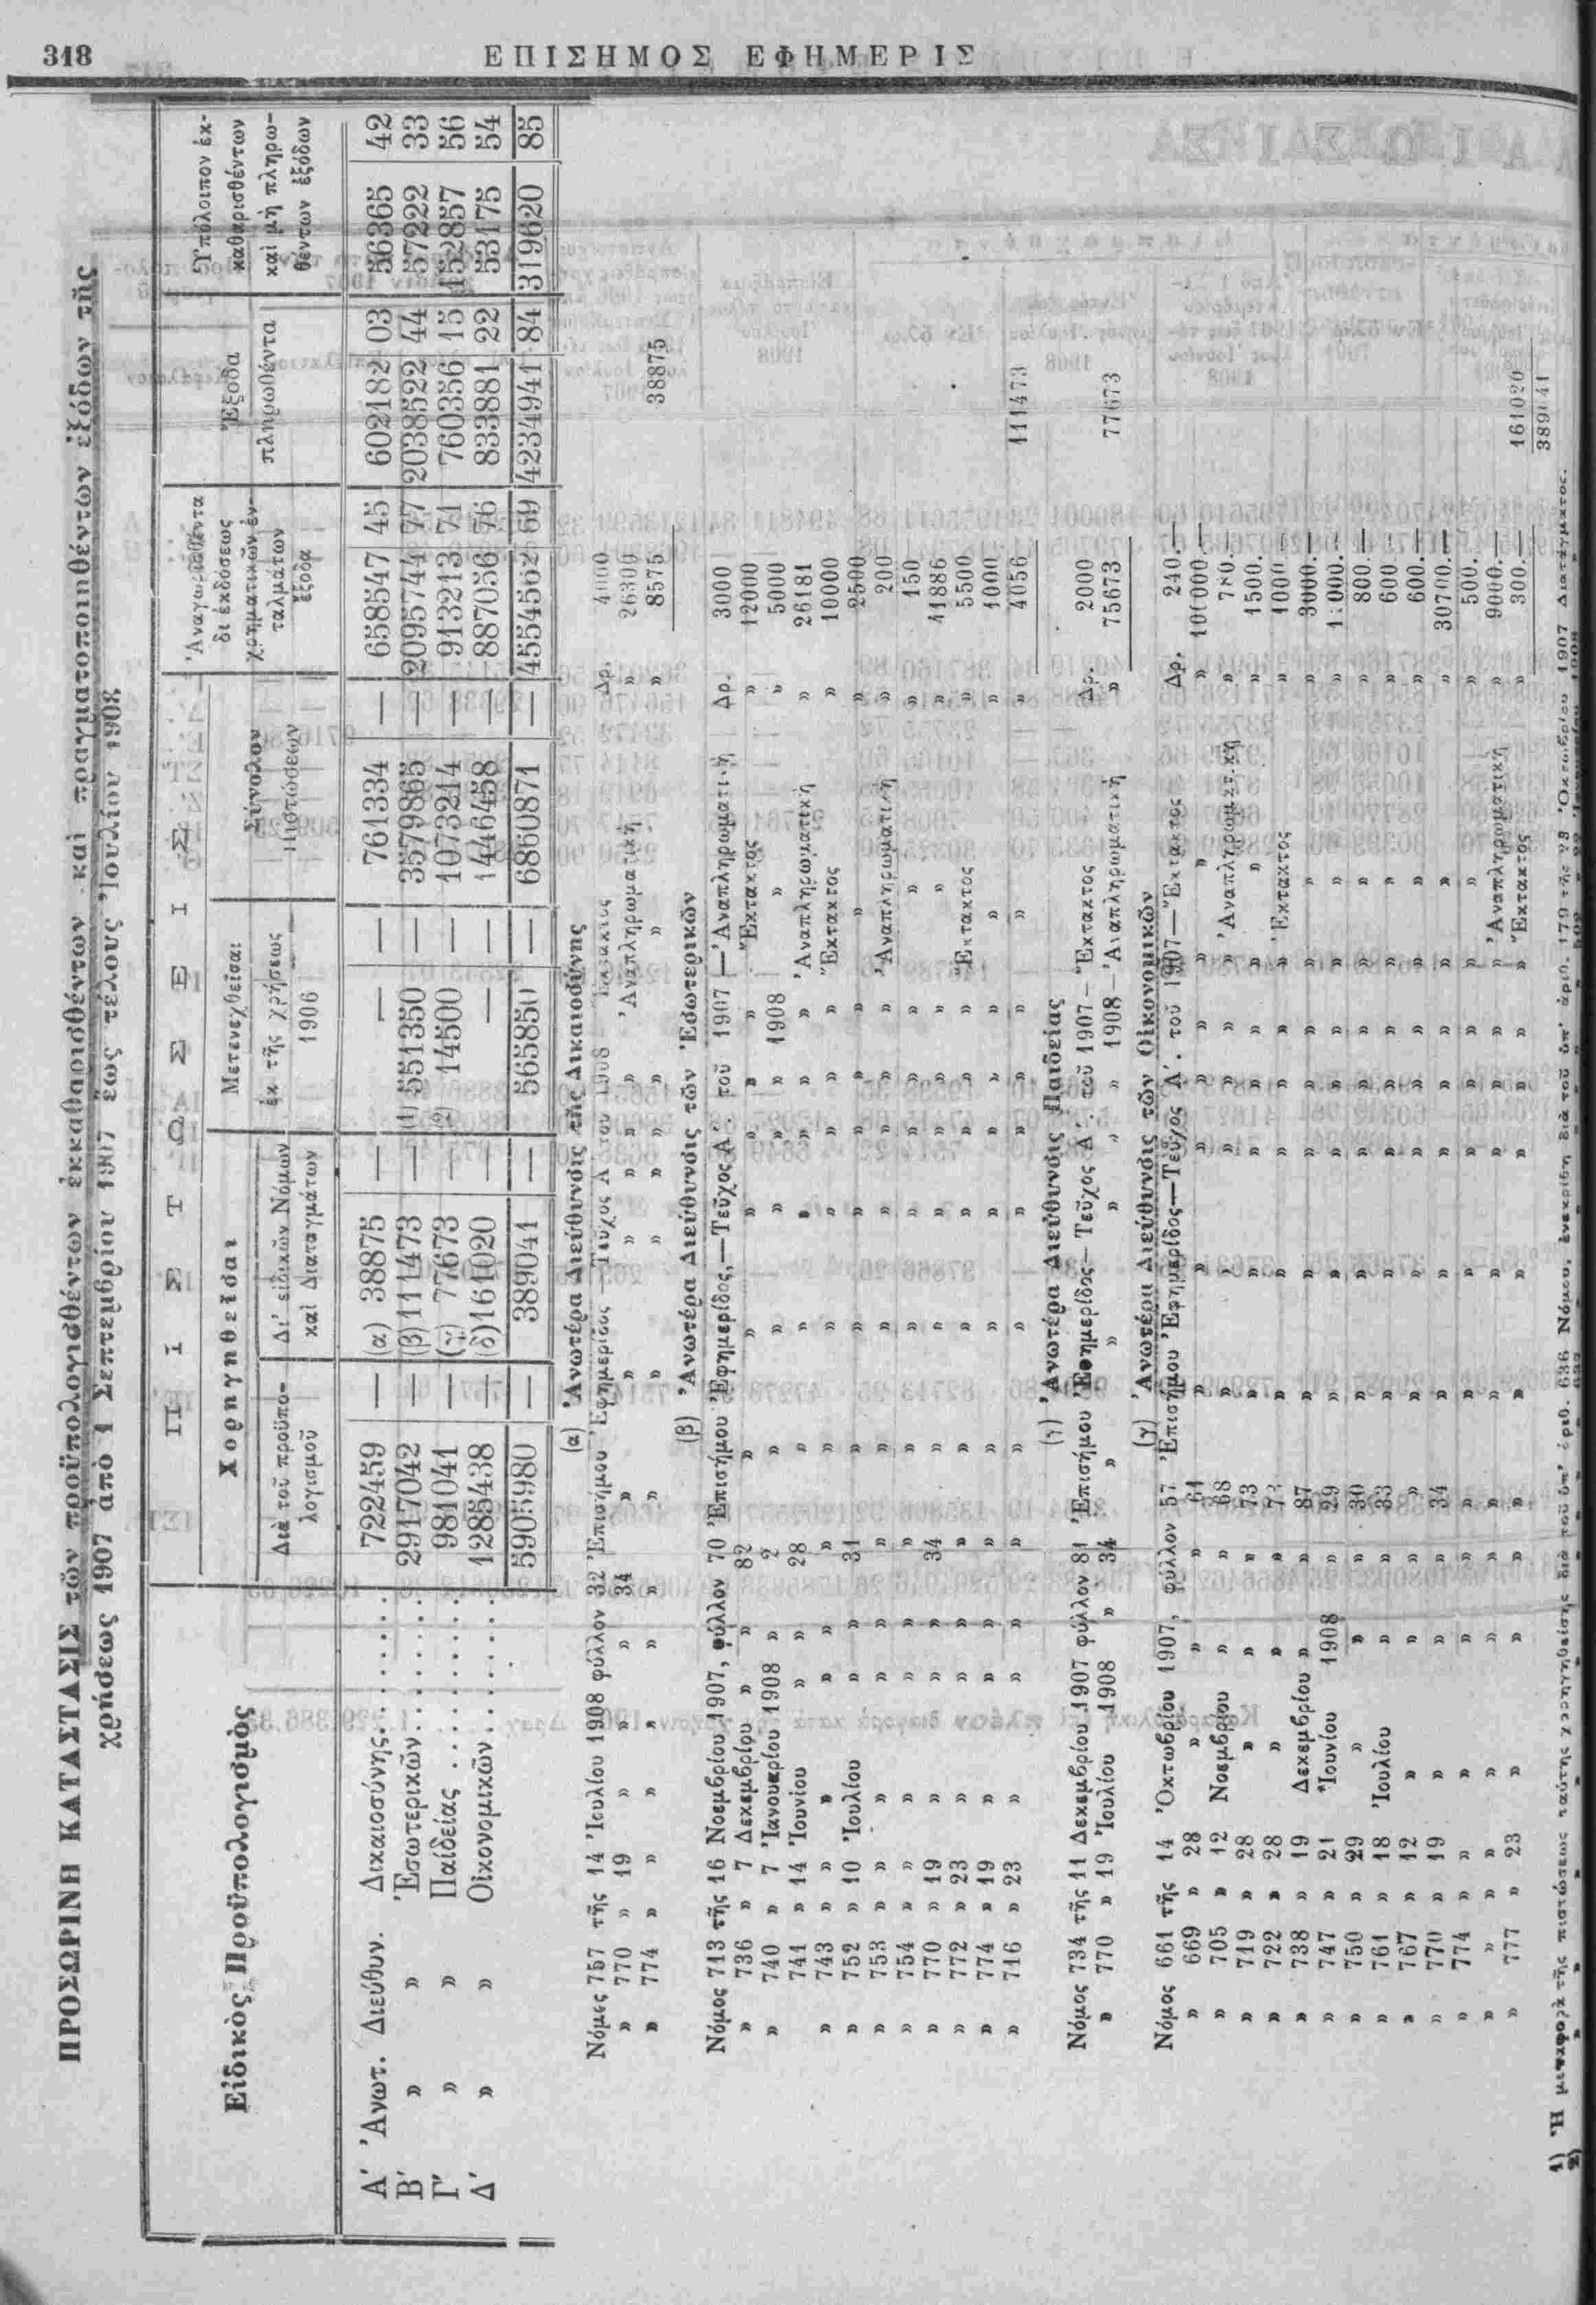 318
ΕΠΙΣΗΜΟΣ ΕΦΗΜΕΡΙΣ
ΠΡΟΣΩΡΙΝΗ ΚΑΤΑΣΤΑΣΙΣ τῶν προϋπολογισθέντων ἐκκαθαρισθέντων καὶ πραγματοποιηθέντων ἐξόδων τῆς
χρήσεως 1907 ἀπὸ 1 Σεπτεμβρίου 1907 ἕως τέλους Ἰουλίου 1908
Εἰδικὸς Προϋπολογισμὸς
ΠΙΣΤΩΣΕΙΣ
Χορηγηθεῖσαι
Διὰ τοῦ προϋπο-
λογισμοῦ
Δι' εἰδικῶν Νόμων
καὶ Διαταγμάτων
Μετενεχθεῖσαι
ἐκ τῆς χρήσεως
1906
Σύνολον
Πιστώσεων
Ἀναγνωρισθέντα
δι' ἐκδόσεως
χρηματικῶν ἐν-
ταλμάτων
ἔξοδα
Ἔξοδα
πληρωθέντα
Ὑπόλοιπον ἐκ-
καθαρισθέντων
καὶ μὴ πληρω-
θέντων ἐξόδων
Α' Ἀνωτ. Διεύθυν. Δικαιοσύνης....... 722459 — (α) 38875 — — — 761334 — 658547 45 602182 03 56365 42
Β' » » Ἐσωτερικῶν...... 2917042 — (β) 111473 — (1) 551350 — 3579865 — 2095744 77 2038522 44 57222 33
Γ' » » Παιδείας ....... 981041 — (γ) 77673 — (2) 14500 — 1073214 — 913213 71 760356 15 152857 56
Δ' » » Οἰκονομικῶν...... 1285438 — (δ) 161020 — — — 1446458 — 887056 76 833881 22 53175 54
5905980 — 389041 — 565850 — 6860871 — 4554562 69 4234941 84 319620 85
(α) Ἀνωτέρα Διεύθυνσις τῆς Δικαιοσύνης
Νόμος 757 τῆς 14 Ἰουλίου 1908 φύλλον 32 Ἐπισήμου Ἐφημερίδος — Τεῦχος Α' τοῦ 1908 — Ἔκτακτος Δρ. 4000
» 770 » 19 » » » 34 » » » » » Ἀναπληρωματικὴ » 26300
» 774 » » » » » » » » » » » » » 8575 38875
(β) Ἀνωτέρα Διεύθυνσις τῶν Ἐσωτερικῶν
Νόμος 713 τῆς 16 Νοεμβρίου 1907, φύλλον 70 Ἐπισήμου Ἐφημερίδος,—Τεῦχος Α'. τοῦ 1907 —Ἀναπληρωματικὴ Δρ. 3000
» 736 » 7 Δεκεμβρίου » » 82 » » » » » Ἔκτακτος » 12000
» 740 » 7 Ἰανουαρίου 1908 » 2 » » » » 1908 » » 5000
741 » 14 Ἰουνίου » » 28 » » » » » Ἀναπληρωματικὴ » 26181
» 743 » » » » » » » » » » » Ἔκτακτος » 10000
» 752 » 10 Ἰουλίου » » 31 » » » » » » » 2500
» 753 » » » » » » » » » » » Ἀναπληρωματικὴ » 200
» 754 » » » » » » » » » » » » » 150
» 770 » 19 » » » 34 » » » » » » » 41886
» 772 » 23 » » » » » » » » » Ἔκτακτος » 5500
» 774 » 19 » » » » » » » » » » » 1000
» 716 » 23 » » » » » » » » » » » 4056 111473
(γ) Ἀνωτέρα Διεύθυνσις Παιδείας
Νόμος 734 τῆς 11 Δεκεμβρίου 1907 φύλλον 81 Ἐπισήμου Ἐφημερίδος— Τεῦχος Α'. τοῦ 1907 — Ἔκτακτος Δρ. 2000
» 770 » 19 Ἰουλίου 1908 » 34 » » » » » 1908 — Ἀναπληρωματικὴ » 75673 77673
(γ) Ἀνωτέρα Διεύθυνσις τῶν Οἰκονομικῶν
Νόμος 661 τῆς 14 Ὀκτωβρίου 1907, φύλλον 57 Ἐπισήμου Ἐφημερίδος—Τεῦχος Α'. τοῦ 1907—Ἔκτακτος Δρ. 240.—
» 669 » 28 » » » 61 » » » » » » » 100000.—
» 705 » 12 Νοεμβρίου » » 68 » » » » » Ἀναπληρωματικὴ » 780.—
» 719 » 28 » » » 73 » » » » » » » 1500.—
» 722 » 28 » » » 73 » » » » » Ἔκτακτος » 1000.—
» 738 » 19 Δεκεμβρίου » » 87 » » » » » » » 3000.—
» 747 » 21 Ἰουνίου 1908 » 29 » » » » » » »
» 750 » 29 » » » 30 » » » » » » » 800.—
» 761 » 18 Ἰουλίου » » 33 » » » » » » » 600.—
» 767 » 12 » » » » » » » » » » » 600.—
» 770 » 19 » » » 34 » » » » » » » 30700.—
» 774 » » » » » » » » » » » » » 500.—
» » » » » » » » » » » » » Ἀναπληρωματικὴ » 9000.—
» 777 » 23 » » » » » » » » » Ἔκτακτος » 300.— 161020
389041
1) Ἡ μεταφορὰ τῆς πιστώσεως ταύτης χορηγηθείσης διὰ τοῦ ὑπ' ἀριθ. 636 Νόμου, ἐνεκρίθη διὰ τοῦ ὑπ' ἀριθ. 179 τῆς 28 Ὀκτωβρίου 1907 Διατάγματος.
2)